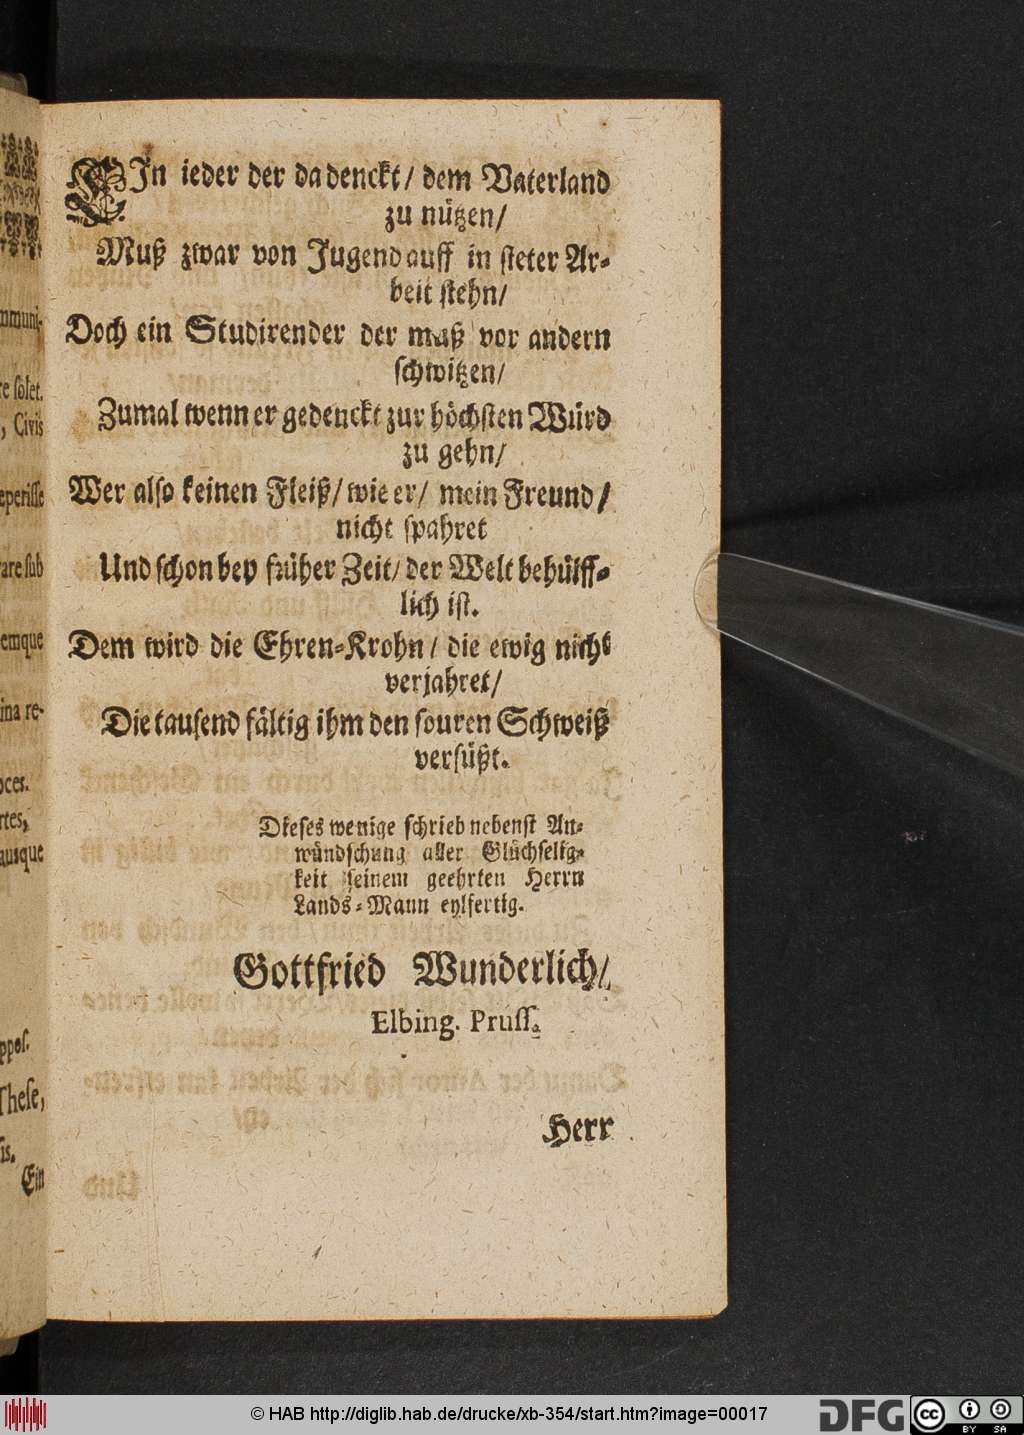 EIn ieder der da denckt/ dem Vaterland
zu nützen/
Muß zwar von Jugend auff in steter Ar-
beit stehn/
Doch ein Studirender der muß vor andern
schwitzen/
Zumal wenn er gedenckt zur höchsten Würd
zu gehn/
Wer also keinen Fleiß/ wie er/ mein Freund/
nicht spahret
Und schon bey früher Zeit/ der Welt behülff-
lich ist.
Dem wird die Ehren-Krohn/ die ewig nicht
verjahret/
Die tausend fältig ihm den souren Schweiß
versüßt.
Dieses wenige schrieb nebenst An-
wündschung aller Glückselig-
keit seinem geehrten Herrn
Lands-Mann eylfertig.
Gottfried Wunderlich/
Elbing. Pruss.
Herr
mmuni-
re solet.
, Civis
eperisse
are sub
emque
ina re-
oces.
rtes,
ausque
ppos.
These,
is.
Ein
© HAB http://diglib.hab.de/drucke/xb-354/start.htm?image=00017
DFG
cc
BY SA